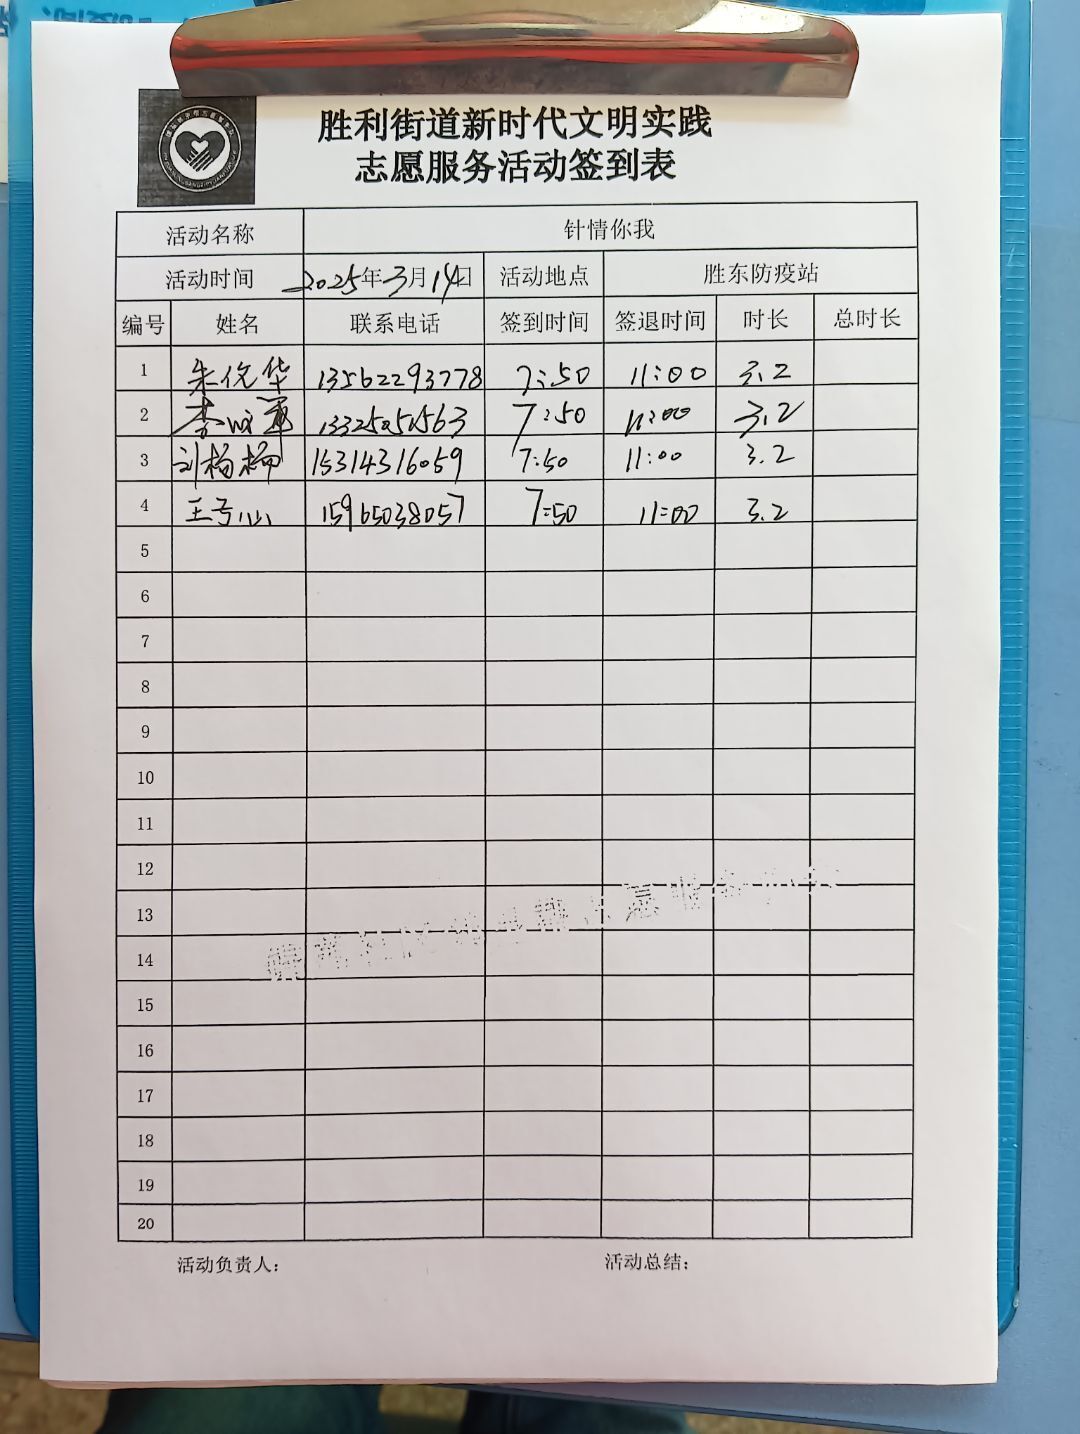 胜利街道新时代文明实践
志愿服务活动签到表
活动名称 针情你我
活动时间 2025年3月14日 活动地点 胜东防疫站
编号 姓名 联系电话 签到时间 签退时间 时长 总时长
1 朱俊华 13562293778 7:50 11:00 3.2
2 李 13325051563 7:50 11:00 3.2
3 刘杨柳 15314316059 7:50 11:00 3.2
4 王 15965038057 7:50 11:00 3.2
5
6
7
8
9
10
11
12
13
14
15
16
17
18
19
20
活动负责人: 活动总结: